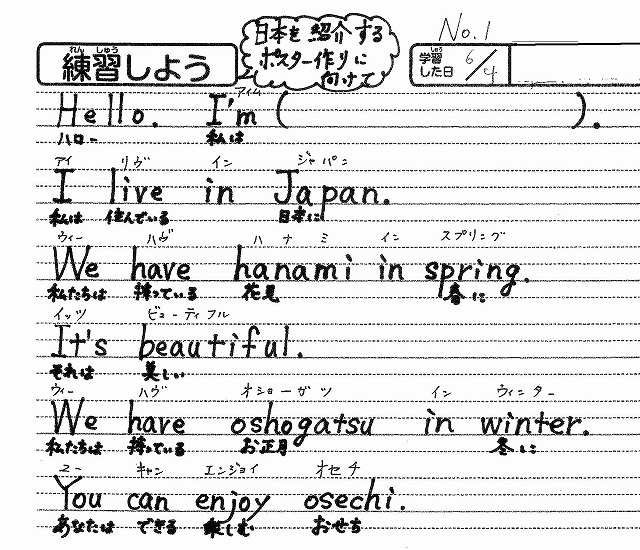 No.1
日本を紹介する
ポスター作りに
向けて
れん しゅう
練習しよう
しゅう
学習
した日
6/4
アイム
Hello. I'm ( ).
ハロー 私は
アイ リヴ イン ジャパン
I live in Japan.
私は 住んでいる 日本に
ウィー ハヴ ハナミ イン スプリング
We have hanami in spring.
私たちは 持っている 花見 春に
イッツ ビューティフル
It's beautiful.
それは 美しい
ウィー ハヴ オショーガツ イン ウィンター
We have oshogatsu in winter.
私たちは 持っている お正月 冬に
ユー キャン エンジョイ オセチ
You can enjoy osechi.
あなたは できる 楽しむ おせち